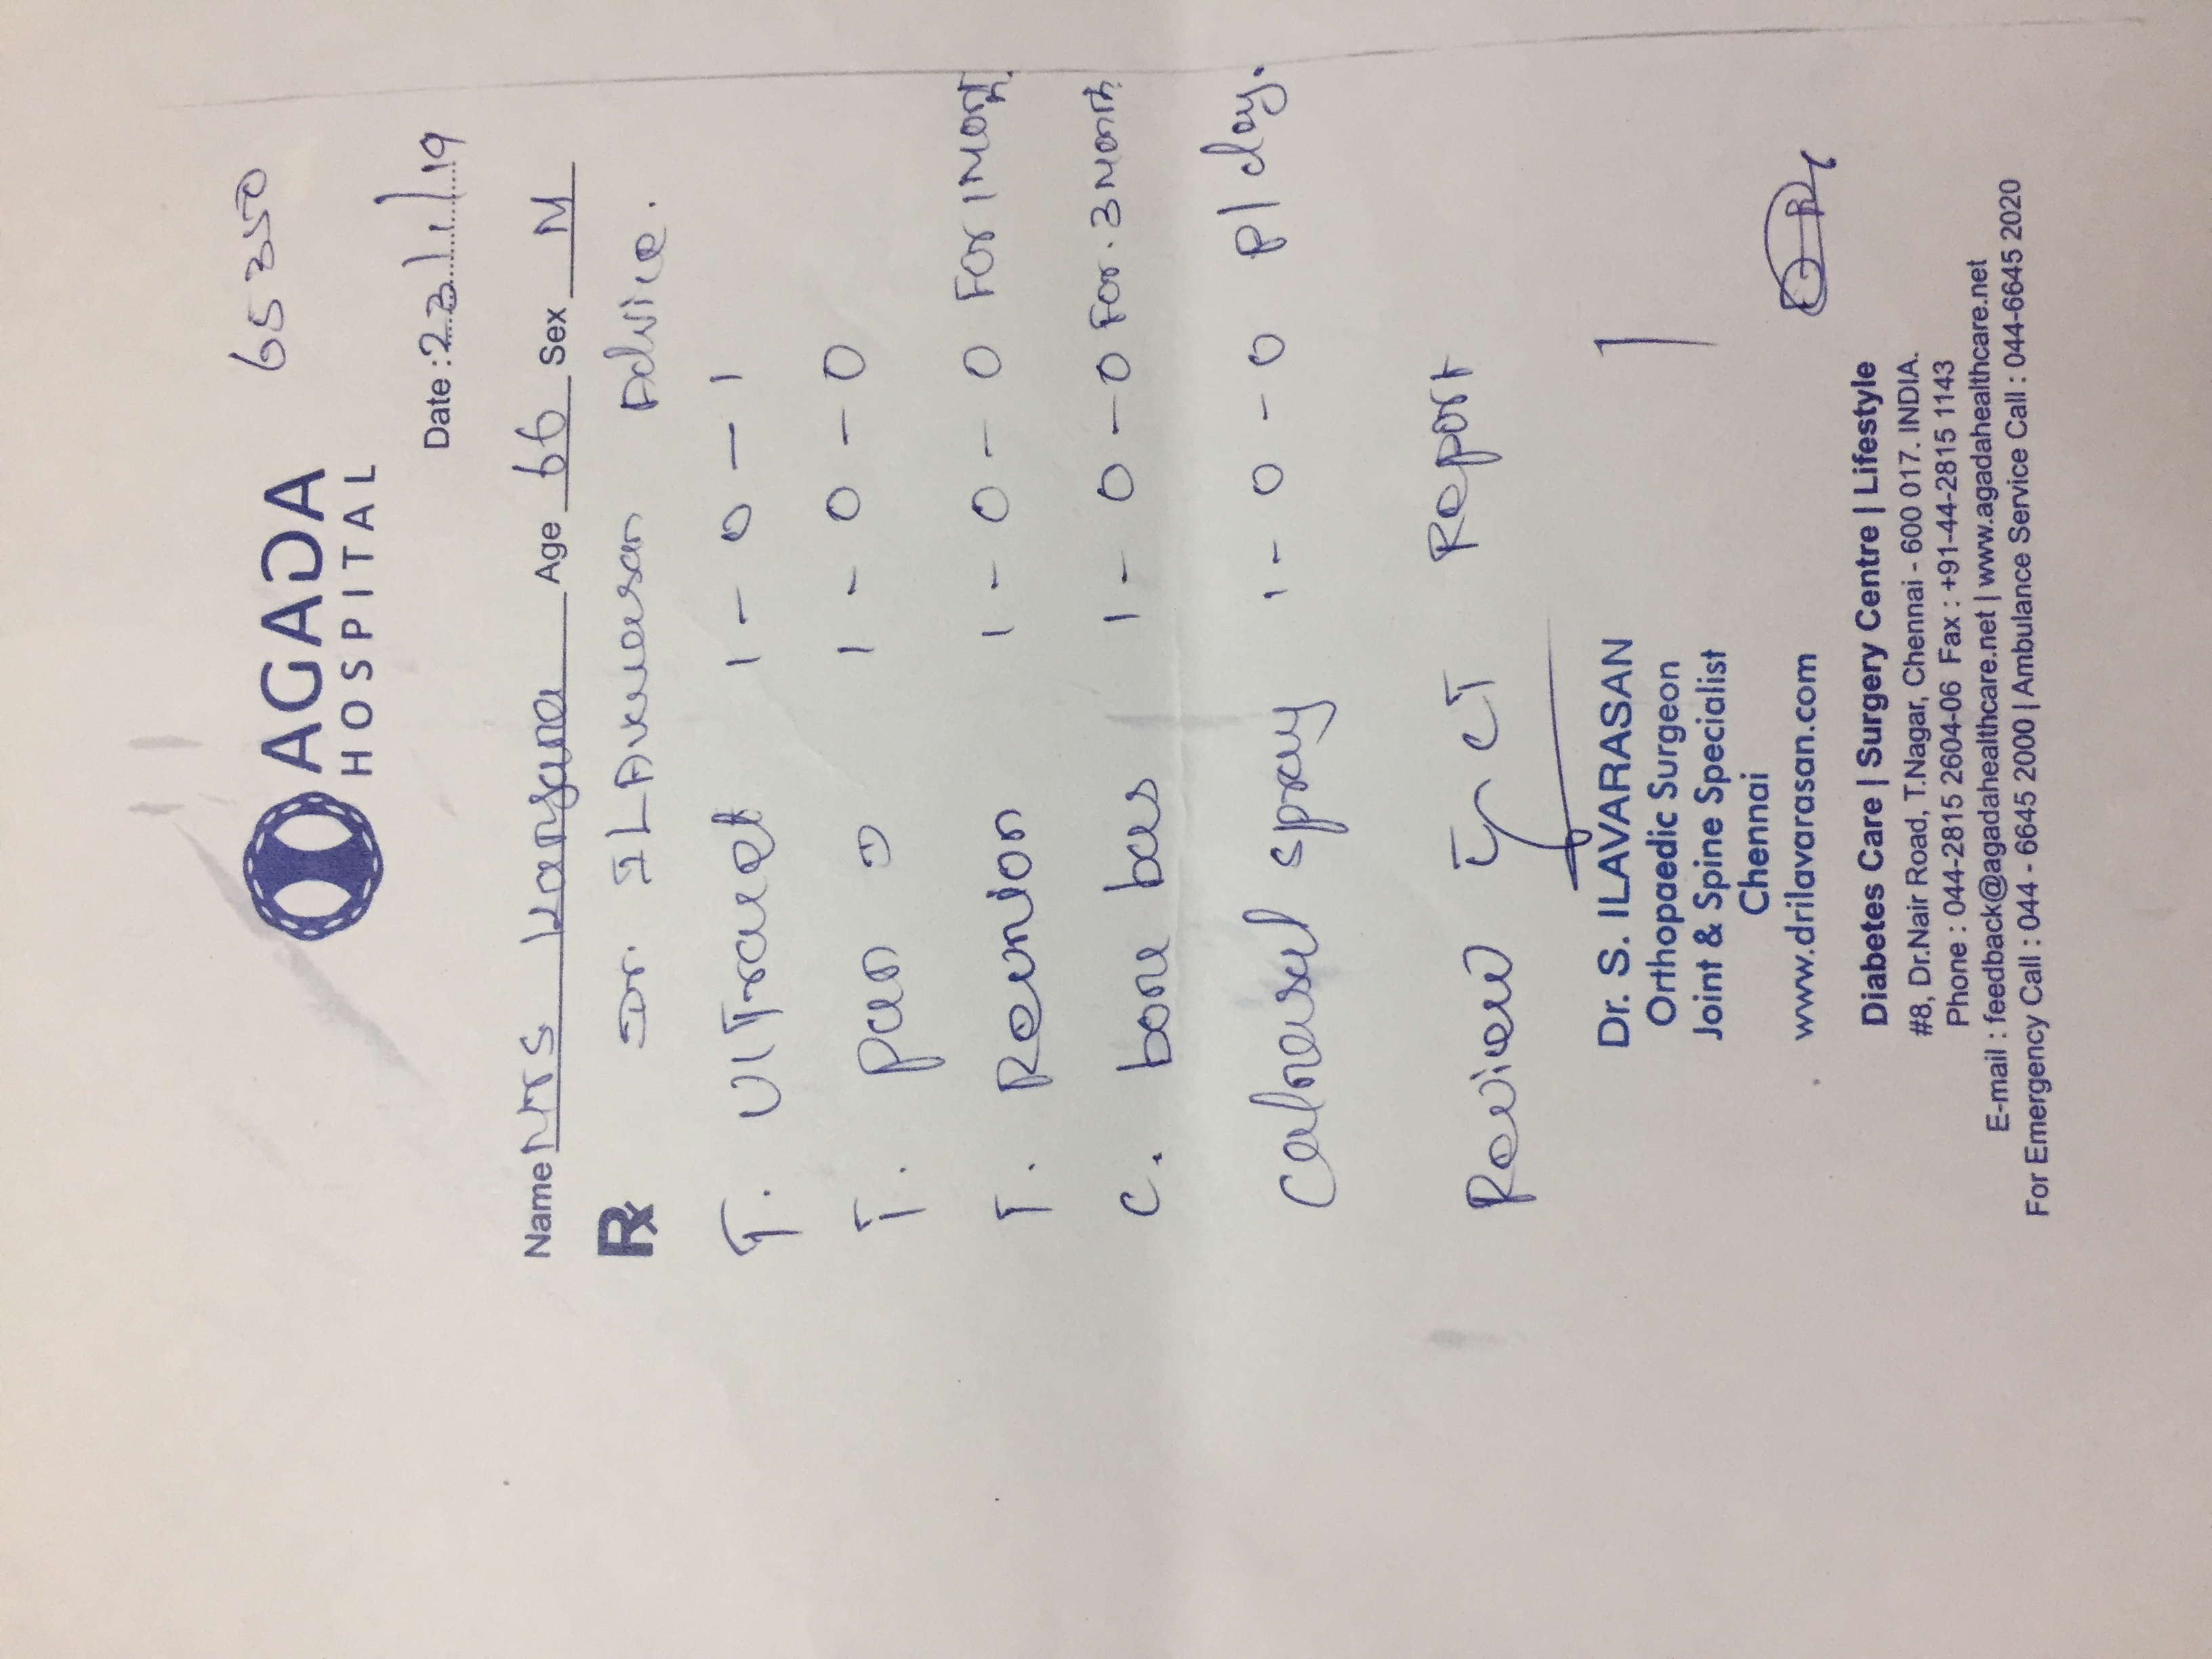 65350
AGADA
HOSPITAL
Date : 23/1/19
Name Mrs Kanjana Age 66 Sex M
Rx Dr. ILAvarasan Advice.
T. Ultracet 1 - 0 - 1
T. pan D 1 - 0 - 0
T. Reunion 1 - 0 - 0 For 1 Month
C. bone bas 1 - 0 - 0 For. 3 Month
Calnasal spray 1 - 0 - 0 P/day.
Review CT Report
Dr. S. ILAVARASAN
Orthopaedic Surgeon
Joint & Spine Specialist
Chennai
www.drilavarasan.com
Diabetes Care | Surgery Centre | Lifestyle
#8, Dr.Nair Road, T.Nagar, Chennai - 600 017. INDIA.
Phone : 044-2815 2604-06 Fax : +91-44-2815 1143
E-mail : feedback@agadahealthcare.net | www.agadahealthcare.net
For Emergency Call : 044 - 6645 2000 | Ambulance Service Call : 044-6645 2020